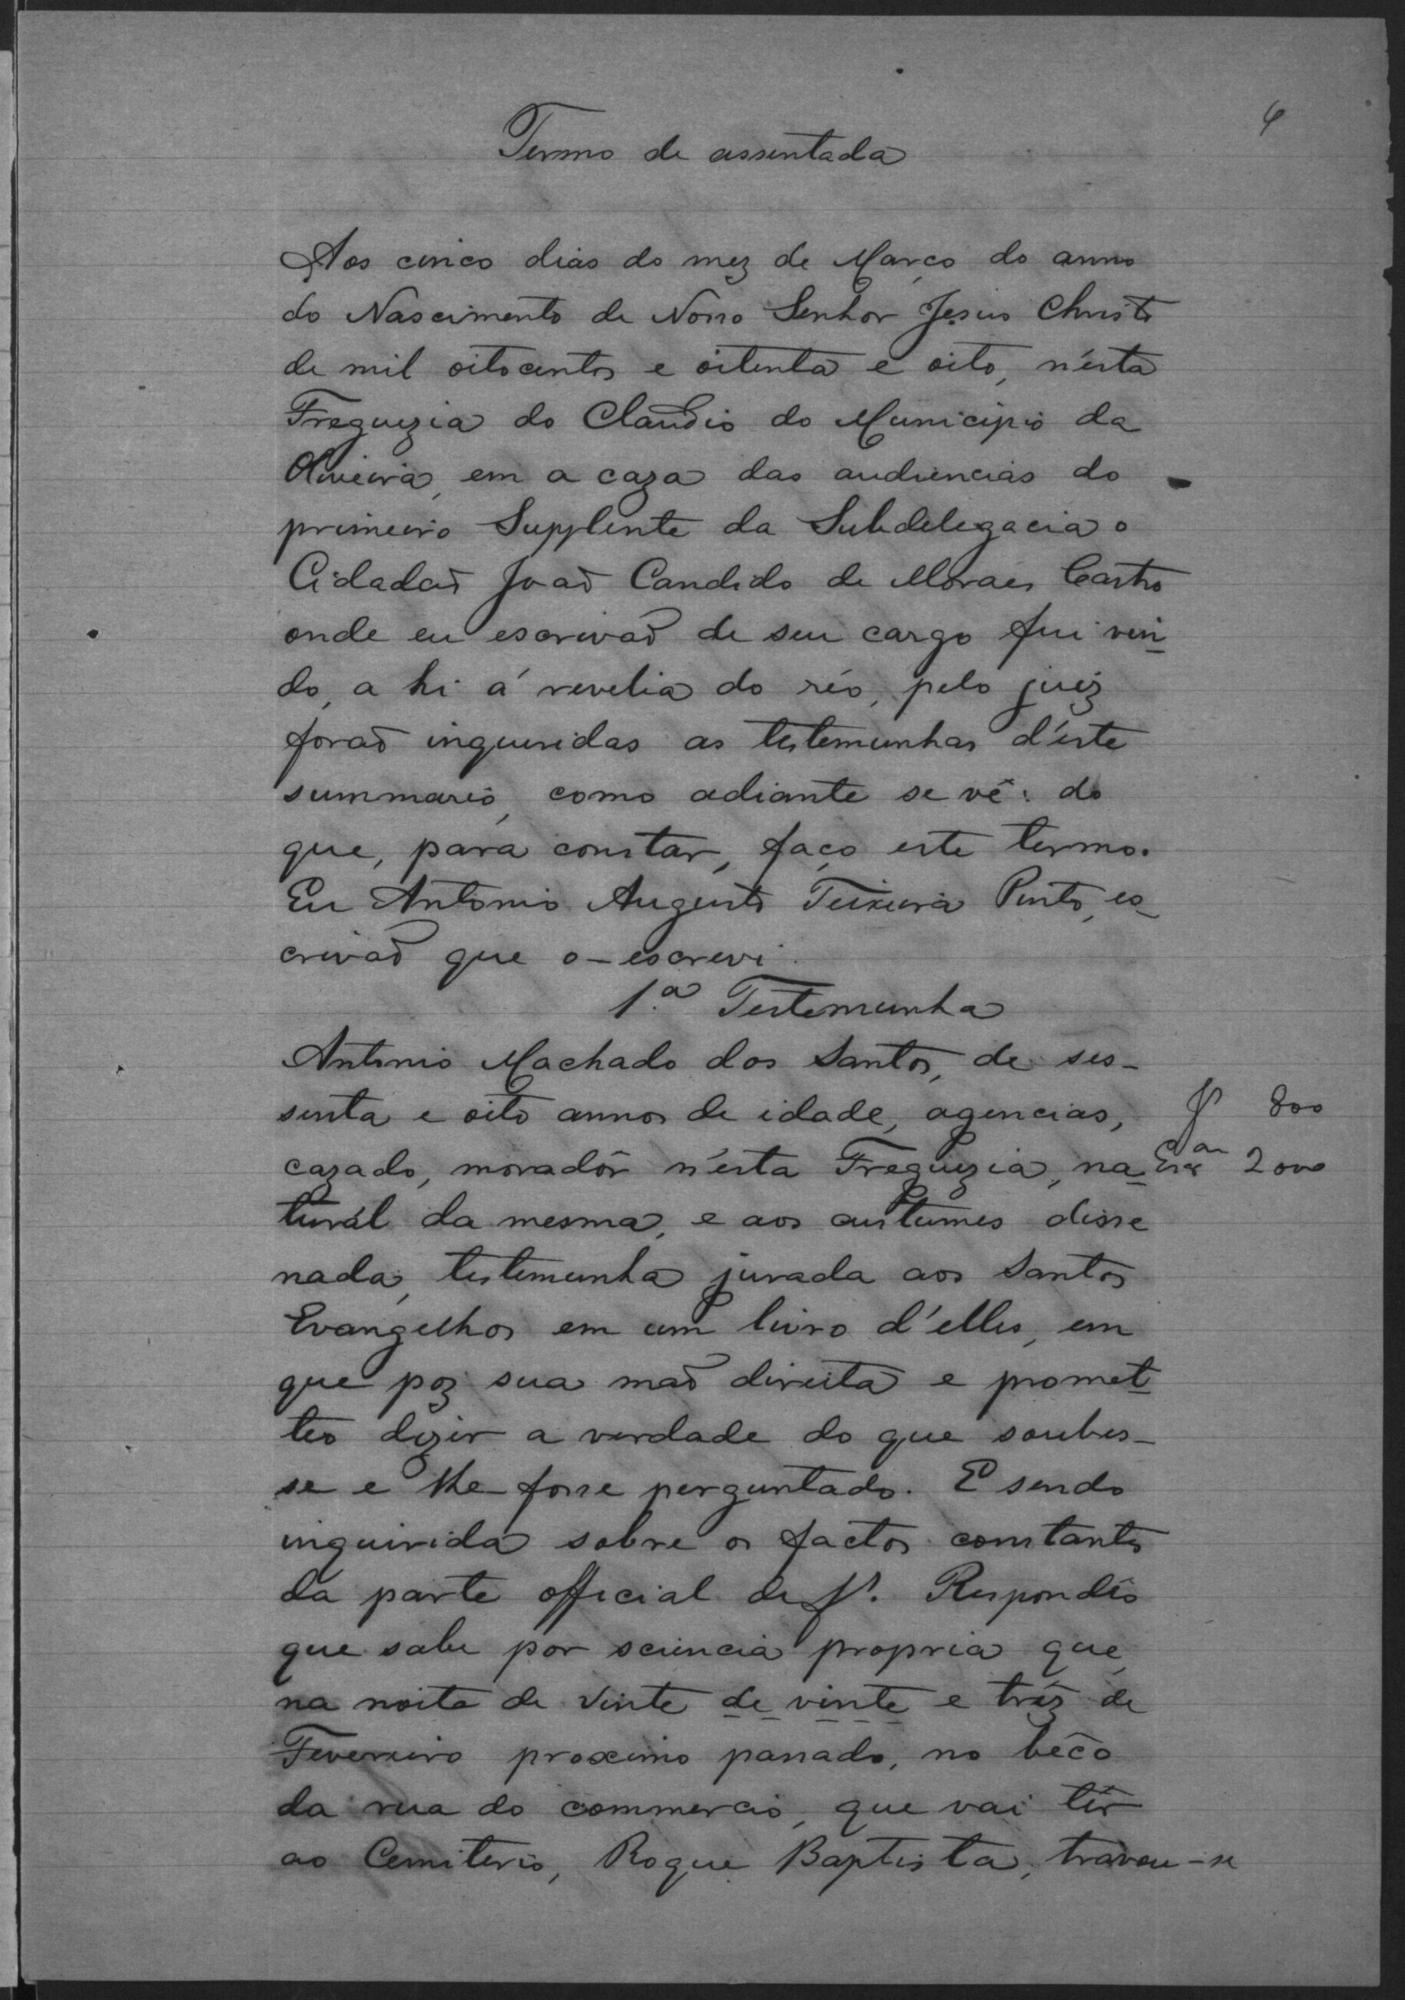 6
Termo de assentada
Aos cinco dias do mez de Março do anno
do Nascimento de Nosso Senhor Jesus Christo
de mil oitocentos e oitenta e oito, n'ésta
Freguezia do Claudio do Municipio da
Oliveira, em a caza das audiencias do
primeiro Supplente da Subdelegacia o
Cidadaõ Joaõ Candido de Moraes Castro
onde eu escrivaõ de seu cargo fui vin-
do, a hi á revelia do réo, pelo juiz
foraõ inqueridas as testemunhas d'éste
summario, como adiante se vê: do
que, para constar, faço este termo.
Eu Antonio Augusto Teixeira Pinto, es-
crivaõ que o-escrevi.
1.a Testemunha
Antonio Machado dos Santos, de ses-
senta e oito annos de idade, agencias,
J 800
cazado, moradôr n'ésta Freguezia, na-
2000
turál da mesma, e aos custumes disse
nada, testemunha jurada aos Santos
Evangelhos em um livro d'elles, em
que poz sua maõ direita e promet-
teo dizer a verdade do que soubes-
se e lhe-fosse perguntado. E sendo
inquirida sobre os factos constantes
da parte official de f. Respondêo
que sabe por sciencia propria que,
na noite de vinte de vinte e tréz de
Fevereiro proximo passado, no bêco
da rua do commercio, que vai têr
ao Cemiterio, Roque Baptista, travou-se